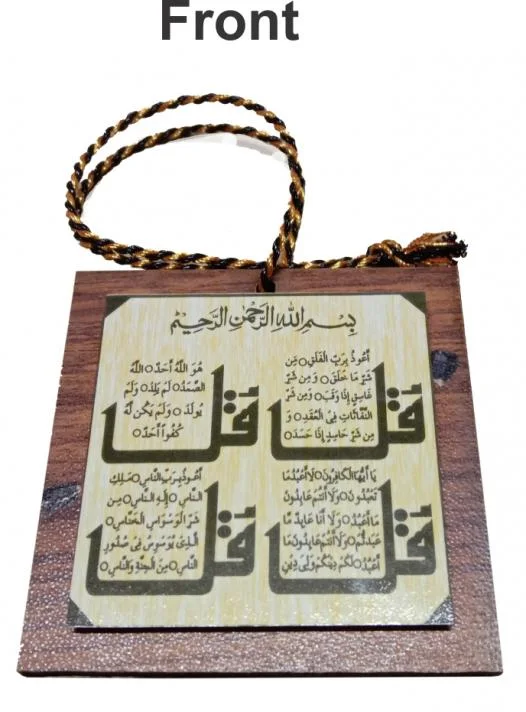 Front
بِسْمِ اللهِ الرَّحْمٰنِ الرَّحِيْمِ
قُلْ
أَعُوذُ بِرَبِّ الْفَلَقِ○مِن
شَرِّ مَا خَلَقَ○وَمِن شَرِّ
غَاسِقٍ إِذَا وَقَبَ○وَمِن شَرِّ
النَّفَّاثَاتِ فِي الْعُقَدِ○وَ
مِن شَرِّ حَاسِدٍ إِذَا حَسَدَ○
قُلْ
هُوَ اللَّهُ أَحَدٌ○اللَّهُ
الصَّمَدُ○لَمْ يَلِدْ○وَلَمْ
يُولَدْ○وَلَمْ يَكُن لَّهُ
كُفُوًا أَحَدٌ○
قُلْ
يَا أَيُّهَا الْكَافِرُونَ○لَا أَعْبُدُ مَا
تَعْبُدُونَ○وَلَا أَنتُمْ عَابِدُونَ
مَا أَعْبُدُ○وَلَا أَنَا عَابِدٌ مَّا
عَبَدتُّمْ○وَلَا أَنتُمْ عَابِدُونَ مَا
أَعْبُدُ○لَكُمْ دِينُكُمْ وَلِيَ دِينِ
قُلْ
أَعُوذُ بِرَبِّ النَّاسِ○مَلِكِ
النَّاسِ○إِلَٰهِ النَّاسِ○مِن
شَرِّ الْوَسْوَاسِ الْخَنَّاسِ○
الَّذِي يُوَسْوِسُ فِي صُدُورِ
النَّاسِ○مِنَ الْجِنَّةِ وَالنَّاسِ○